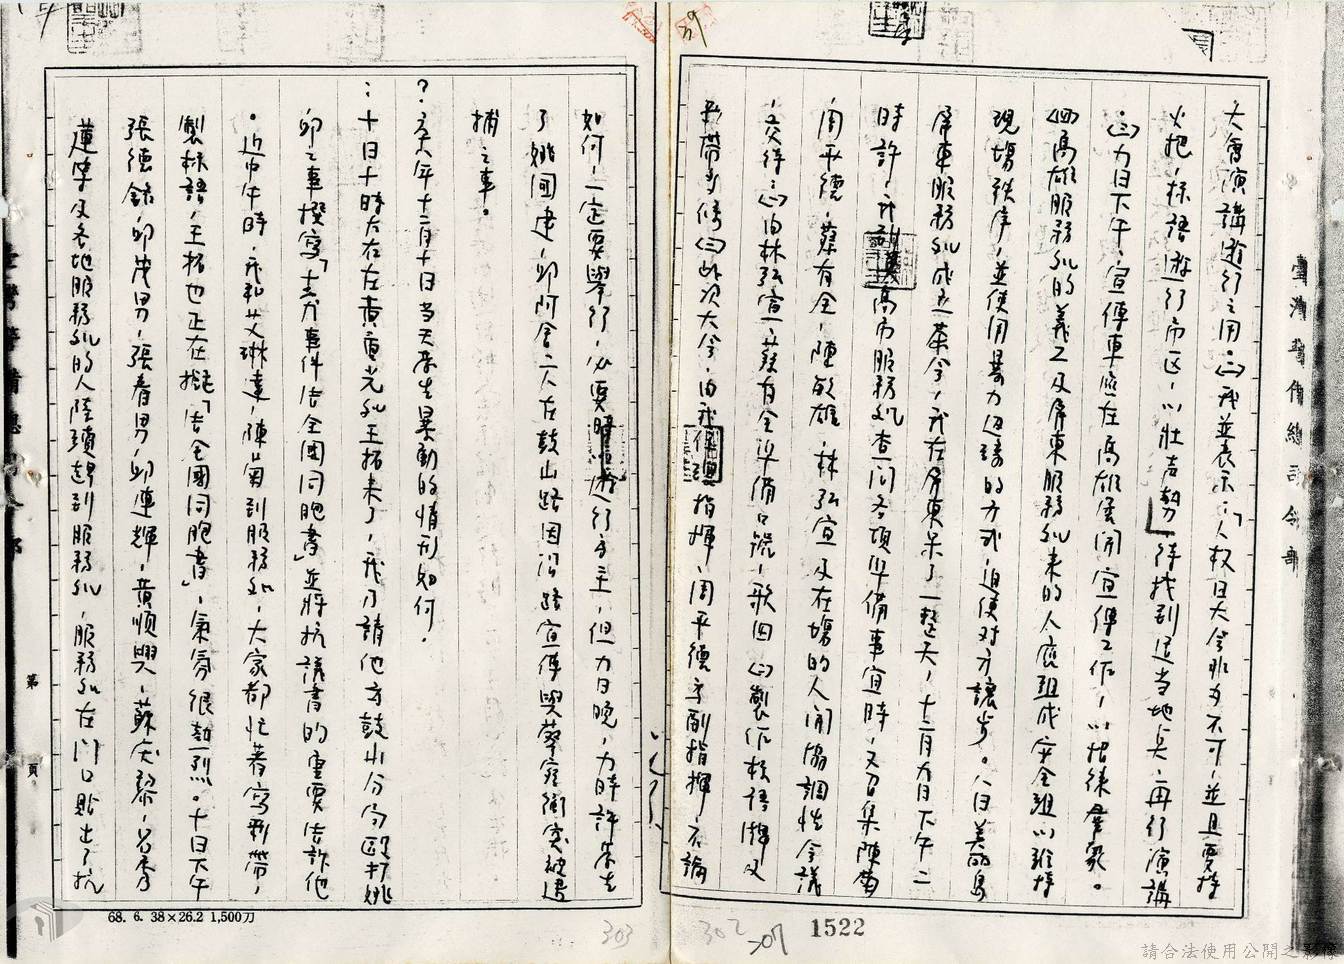 大會演講遊行之用。㈡我並表示:「人權日大會非办不可,並且要持
火把,標語遊行市区,以壯声勢」待找到适当地点,再行演講
。㈢九日下午,宣傳車應在高雄展開宣傳工作,以招徠羣眾。
㈣高雄服務処的義工及屏東服務処来的人應組成安全組以維持
現場秩序,並使用暴力边緣的方式,迫使对方讓步。八日美丽島
屏東服務処成立茶会,我在屏東呆了一整天,十二月九日下午二
時許,我到高市服務処查問各項準備事宜時,又召集陳菊
周平德,蔡有全,陳敏雄,林弘宣及在場的人開協調性会議
,交待:㈠由林弘宣、蔡有全準備口號,歌曲㈡製作标語牌及
彩帶多條㈢此次大会,由我任總指揮,周平德为副指揮,不論
如何,一定要舉行,必要時遊行为主,但九日晚,九時許发生
了姚国建,邱阿舍二人在鼓山路因沿路宣傳與警察衝突被逮
捕之事。
?六八年十二月十日当天发生暴動的情形如何。
:十日十時左右左黃信光処王拓来了,我乃請他为鼓山分局毆打姚
邱之事撰寫「告全国同胞書」並將抗議書的重要告訴他
。近中午時,我和艾琳達,陳菊到服務処,大家都忙著寫彩帶,
製标語,王拓也正在擬「告全國同胞書」,氣氛很熱烈。十日下午
張德銘,邱茂男,張春男,邱連輝,黃順興,蘇慶黎,呂秀
蓮等及各地服務処的人陸續趕到服務処,服務処在门口貼出了抗
臺灣警備總司令部
第 頁
68. 6. 38×26.2 1,500刀
303
302
307
1522
請合法使用公開之影像